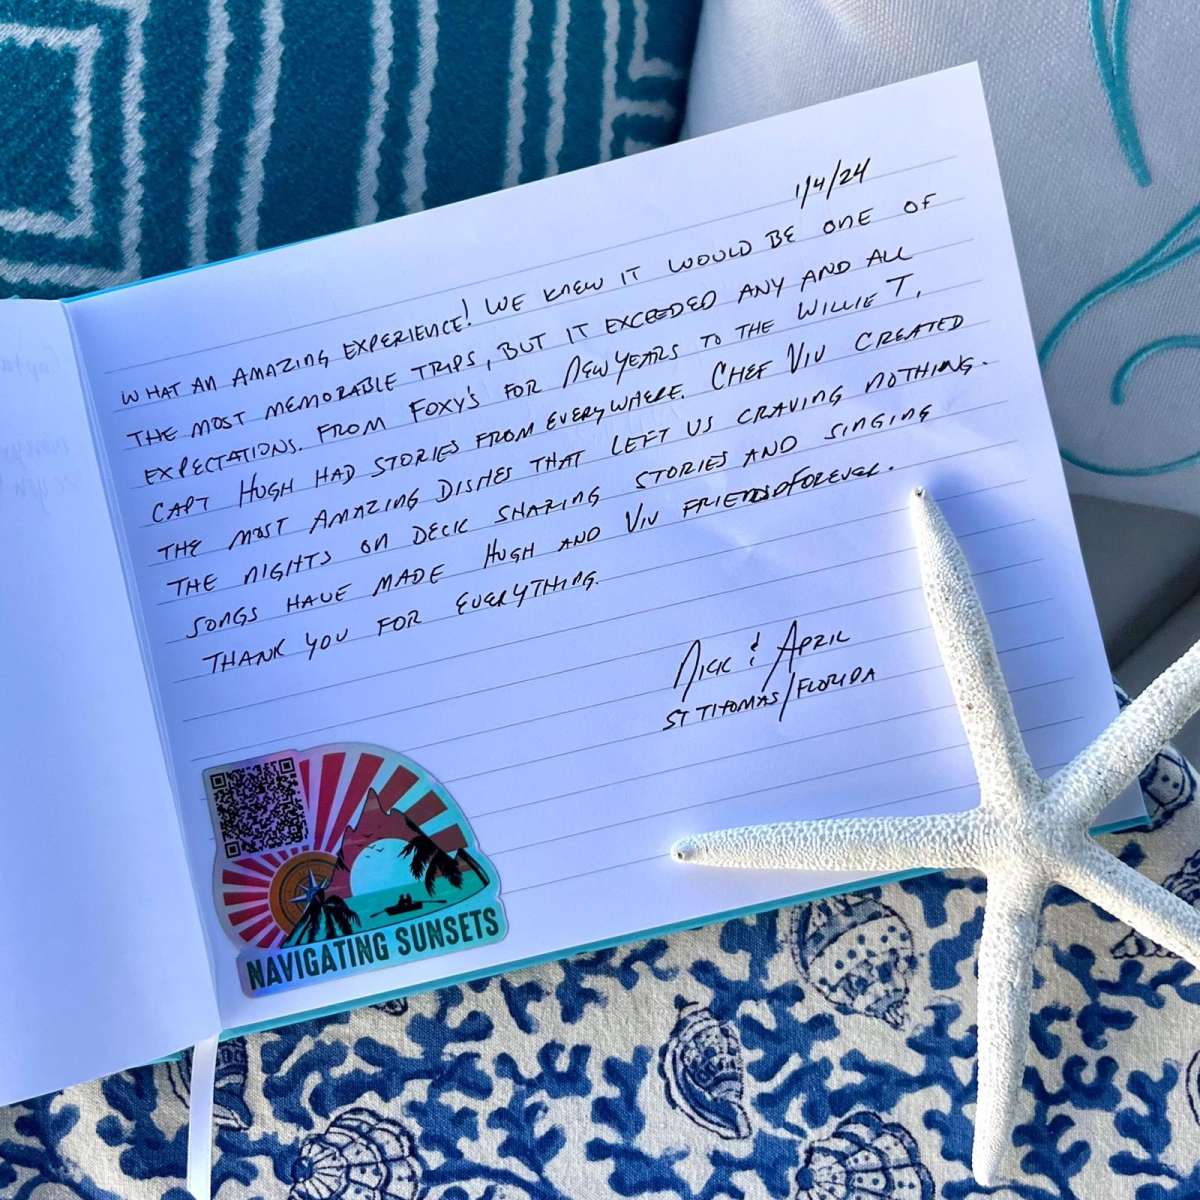 1/4/24
WHAT AN AMAZING EXPERIENCE! WE KNEW IT WOULD BE ONE OF
THE MOST MEMORABLE TRIPS, BUT IT EXCEEDED ANY AND ALL
EXPECTATIONS. FROM FOXY'S FOR NEW YEARS TO THE WILLIE T.
CAPT HUGH HAD STORIES FROM EVERYWHERE. CHEF VIV CREATED
THE MOST AMAZING DISHES THAT LEFT US CRAVING NOTHING.
THE NIGHTS ON DECK SHARING STORIES AND SINGING
SONGS HAVE MADE HUGH AND VIV FRIENDS FOREVER.
THANK YOU FOR EVERYTHING.
NICK & APRIL
ST THOMAS/FLORIDA
NAVIGATING SUNSETS